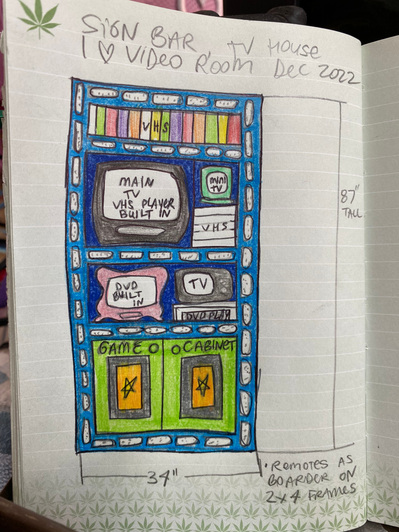 SIGN BAR TV HOUSE
I ♡ VIDEO ROOM DEC 2022
VHS
MAIN
TV
VHS PLAYER
BUILT IN
MINI
TV
VHS
87"
TALL
DVD
BUILT
IN
TV
DVD PLAY
GAME CABINET
34"
• REMOTES AS
BOARDER ON
2x4 FRAMES